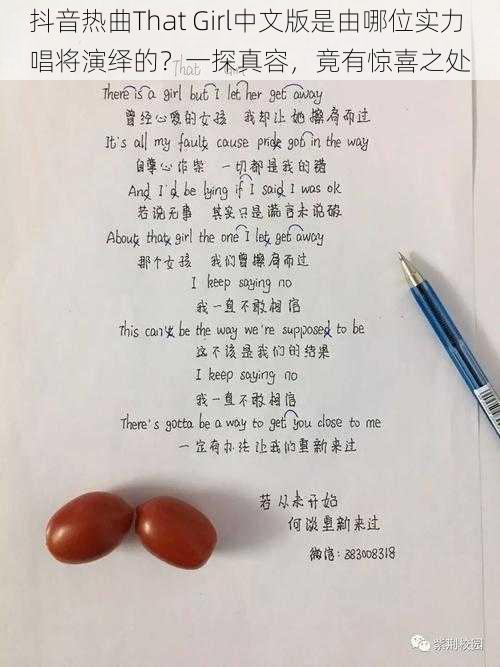 抖音热曲That Girl中文版是由哪位实力
唱将演绎的？一探真容，竟有惊喜之处
That Girl
There is a girl but I let her get away
曾经心爱的女孩 我却让她擦肩而过
It's all my fault cause pride got in the way
自尊心作祟 一切都是我的错
And I'd be lying if I said I was ok
若说无事 其实只是谎言未说破
About that girl the one I let get away
那个女孩 我们曾擦肩而过
I keep saying no
我一直不敢相信
This can't be the way we're supposed to be
这不该是我们的结果
I keep saying no
我一直不敢相信
There's gotta be a way to get you close to me
一定有办法让我们重新来过
若从未开始
何谈重新来过
微信:383008318
紫荆校园